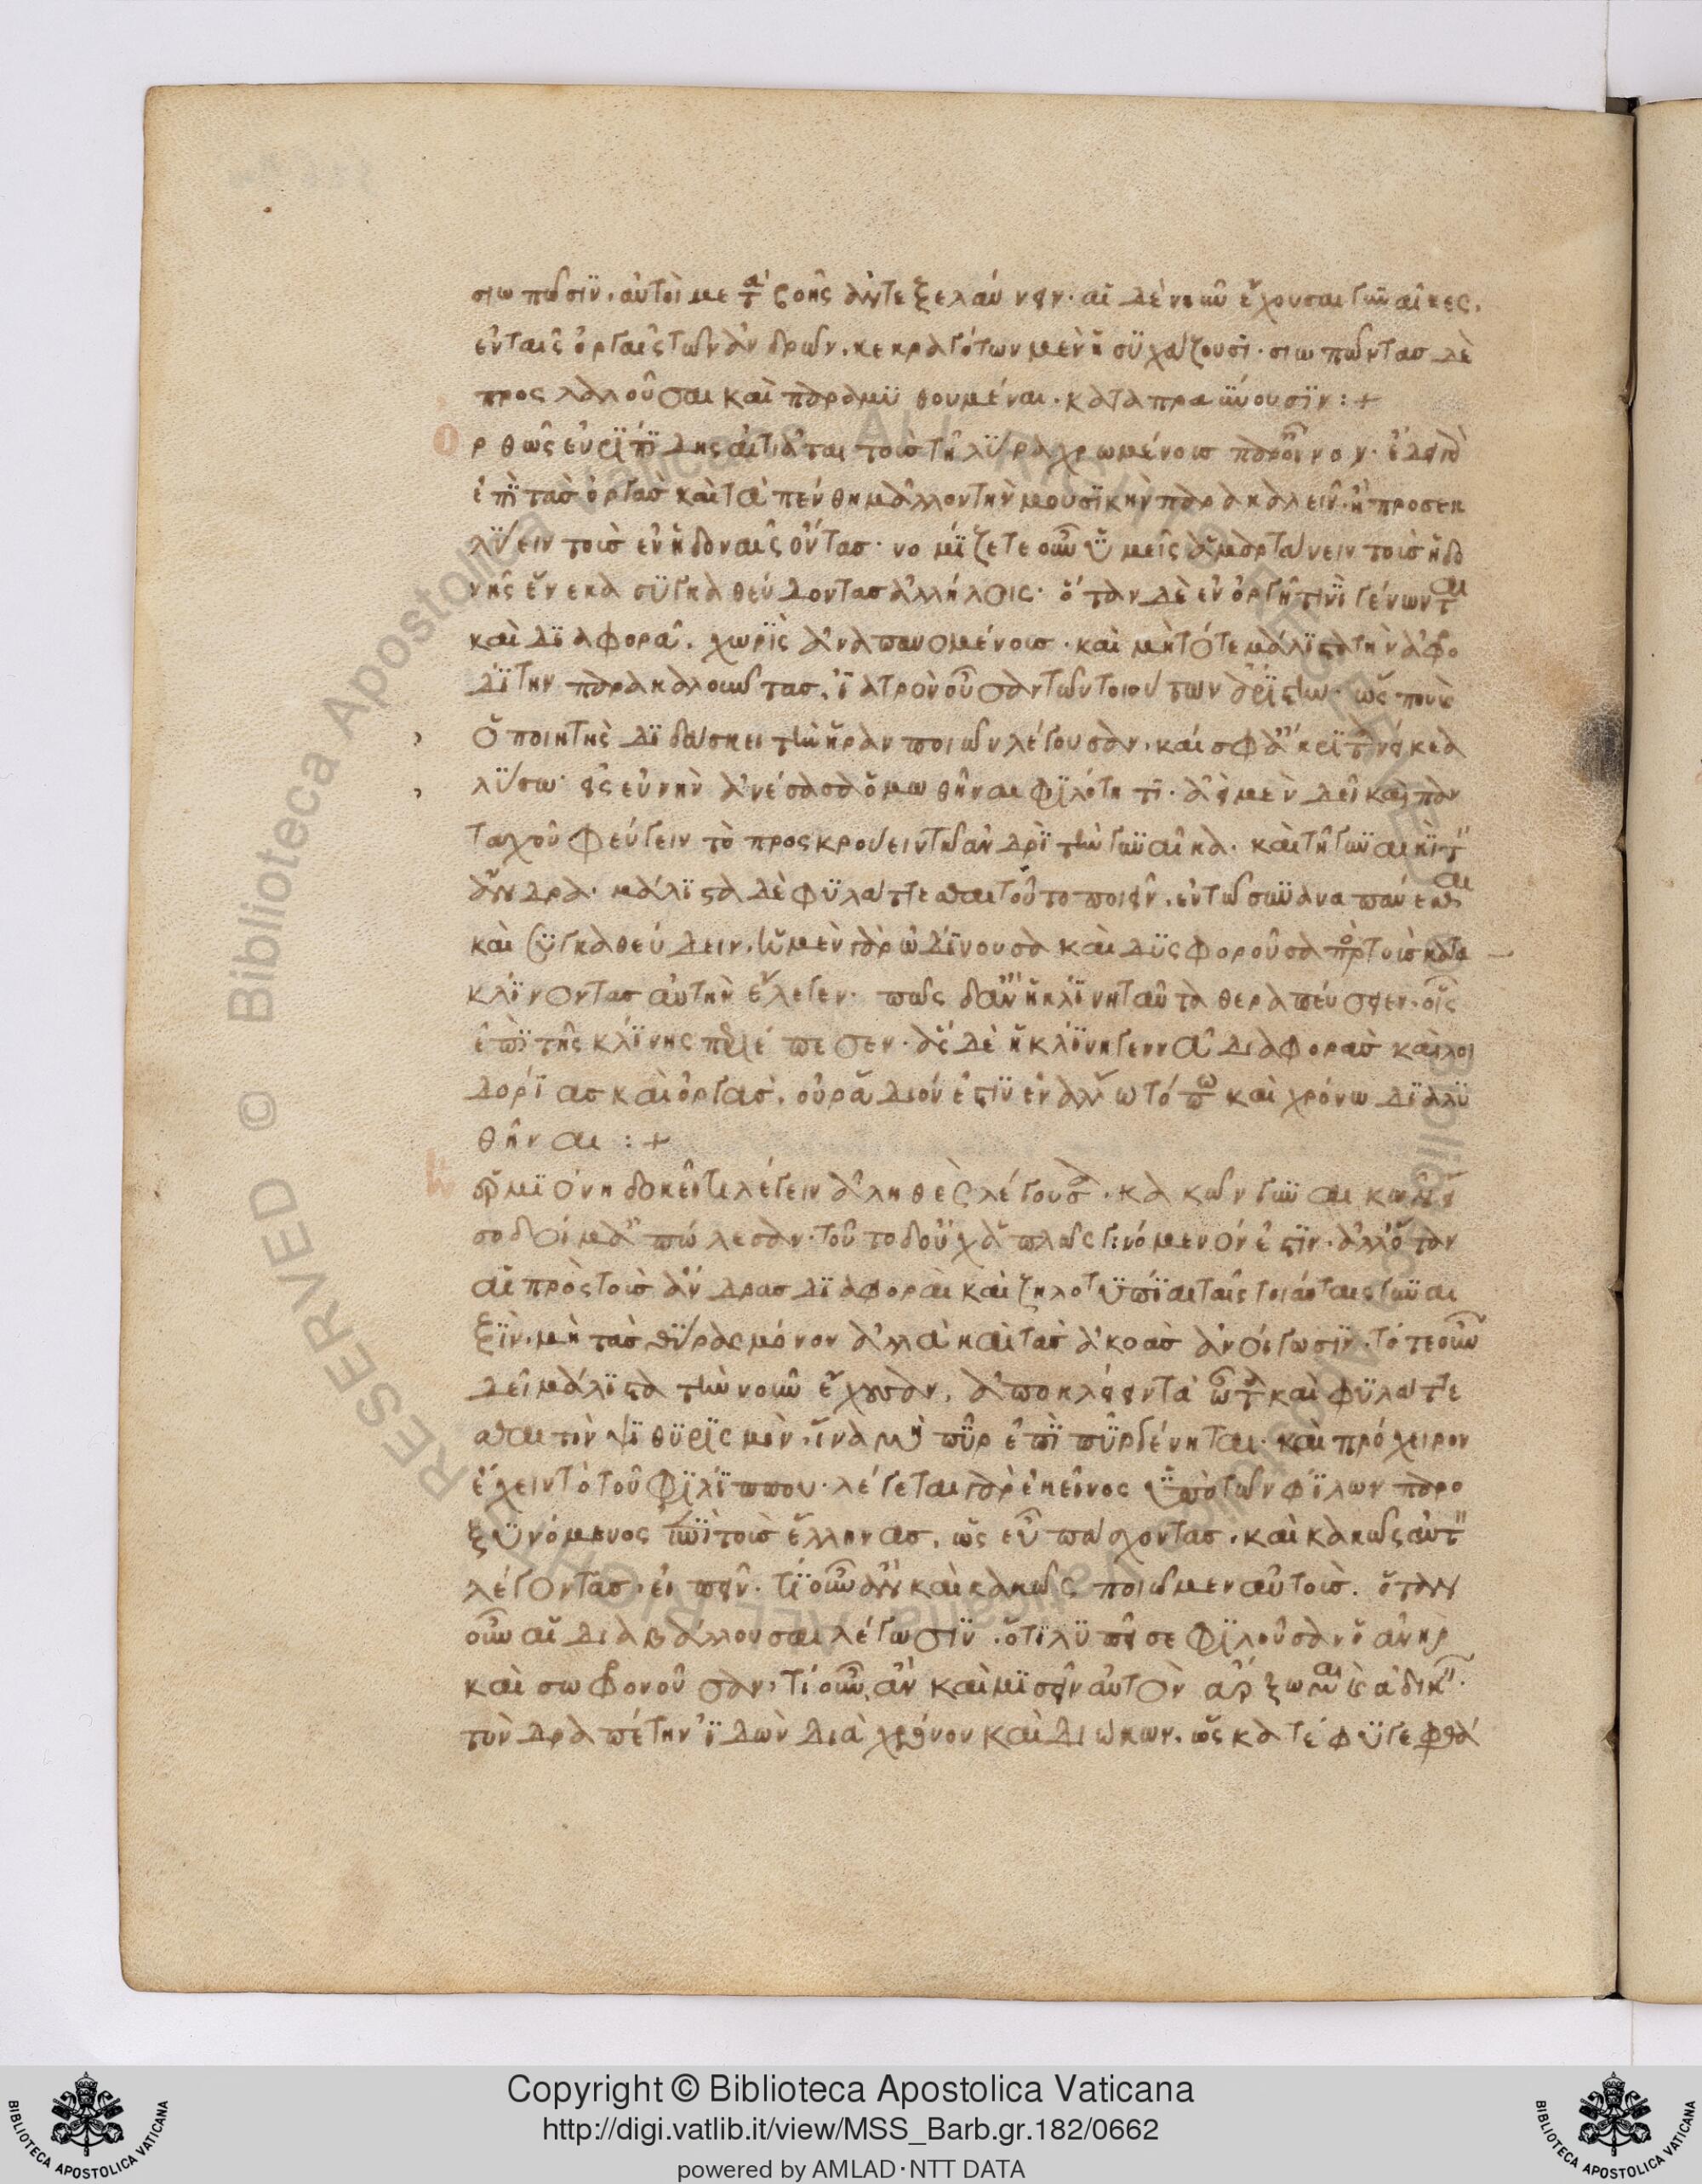 σιωπῶσιν. αὐτοὶ μετὰ ζοῆς ἀντεξελαύνειν· αἱ δὲ νοῦν ἔχουσαι γυναῖκες,
ἐν ταῖς ὀργαῖς τῶν ἀνδρῶν. κεκραγότων μὲν ἡσυχάζουσι· σιωπῶντας δὲ
προσλαλοῦσαι καὶ παραμυθουμέναι. καταπραΰνουσιν :+
Ὀρθῶς εὐριπίδης αἰτιᾶται τοὺς τῆ λύρα χρωμένους παρ' οἶνον. ἔδει γὰρ
ἐπὶ τὰς ὀργὰς καὶ τὰ πένθη μᾶλλον τὴν μουσικὴν παρακαλεῖν. ἢ προσεκ
λύειν τοὺς ἐν ἡδοναῖς ὄντας· νομίζετε οὖν ὑμεῖς ἁμαρτάνειν τοὺς ἡδο
νῆς ἕνεκα συγκαθεύδοντας ἀλλήλοις· ὅταν δὲ ἐν ὀργῆ τινὶ γένωνται
καὶ διαφορᾶ. χωρὶς ἀναπαυομένους. καὶ μὴ τότε μάλιστα τὴν ἀφρο
δίτην παρακαλοῦντας, ἰατρὸν οὖσαν τῶν τοιούτων ἀρίστην. ὥς που καὶ
ὁ ποιητὴς διδάσκει τὴν ἥραν ποιῶν λέγουσαν. καί σφ' ἄκριτα νείκεα
λύσω· εἰς εὐνὴν ἀνέσασα ὁμωθῆναι φιλότητι. ἀεὶ μὲν δεῖ καὶ παν
ταχοῦ φεύγειν τὸ προσκρούειν τῶ ἀνδρὶ τὴν γυναῖκα. καὶ τῆ γυναικὶ τὸν
ἄνδρα. μάλιστα δὲ φυλάττεσθαι τοῦτο ποιεῖν. ἐν τῶ συναναπαύεσθαι
καὶ συγκαθεύδειν. ἡ μὲν γὰρ ὠδίνουσα καὶ δυσφοροῦσα πρὸς τοὺς κατα
κλίνοντας αὐτὴν ἔλεγεν. πῶς δ' ἂν ἡ κλίνη ταῦτα θεραπεύσειεν. οἷς
ἐπὶ τῆς κλίνης περιέπεσεν. ἃς δὲ ἡ κλίνη γεννᾶ διαφορὰς καὶ λοι
δορίας καὶ ὀργὰς. οὐ ῥάδιόν ἐστιν ἐν ἄλλω τόπω καὶ χρόνω διαλυ
θῆναι :+
Ἡ ἑρμιόνη δοκεῖ τι λέγειν ἀληθὲς λέγουσα. κακῶν γυναικῶν εἴ
σοδοί μ' ἀπώλεσαν. τοῦτο δ' οὐχ ἁπλῶς γινόμενόν ἐστιν. ἀλλ' ὅταν
αἱ πρὸς τοὺς ἄνδρας διαφοραὶ καὶ ζηλοτυπίαι ταῖς τοιαύταις γυναι
ξὶν. μὴ τὰς θύρας μόνον ἀλλὰ καὶ τὰς ἀκοὰς ἀνοίγωσιν. τότε οὖν
δεῖ μάλιστα τὴν νοῦν ἔχουσαν, ἀποκλείειν τὰ ὦτα καὶ φυλάττε
σθαι τὸν ψιθυρισμὸν. ἵνα μὴ πῦρ ἐπὶ πῦρ γένηται. καὶ πρόχειρον
ἔχειν τὸ τοῦ φιλίππου. λέγεται γὰρ ἐκεῖνος ὑπὸ τῶν φίλων παρο
ξυνόμενος ἐπὶ τοὺς ἕλληνας, ὡς εὖ πάσχοντας. καὶ κακῶς αὐτὸν
λέγοντας. εἰπεῖν. τί οὖν ἂν καὶ κακῶς ποιῶμεν αὐτοὺς. ὅταν
οὖν αἱ διαβάλλουσαι λέγωσιν. ὅτι λυπεῖ σε φιλοῦσαν ὁ ἀνὴρ
καὶ σωφρονοῦσαν, τί οὖν, ἂν καὶ μισεῖν αὐτὸν ἄρξωμαι καὶ ἀδικεῖν.
τὸν δραπέτην ἰδὼν διὰ χρόνου καὶ διώκων. ὡς κατέφυγε φθά
Copyright © Biblioteca Apostolica Vaticana
http://digi.vatlib.it/view/MSS_Barb.gr.182/0662
powered by AMLAD·NTT DATA